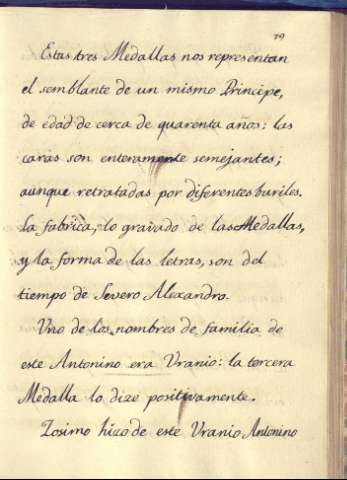 79
Estas tres Medallas nos representan
el semblante de un mismo Principe,
de edad de cerca de quarenta años: las
caras son enteramente semejantes;
aunque retratadas por diferentes buriles.
La fabrica, lo gravado de las Medallas,
y la forma de las letras, son del
tiempo de Severo Alexandro.
Uno de los nombres de familia de
este Antonino era Vranio: la tercera
Medalla lo dize positivamente.
Zosimo hizo de este Vranio Antonino